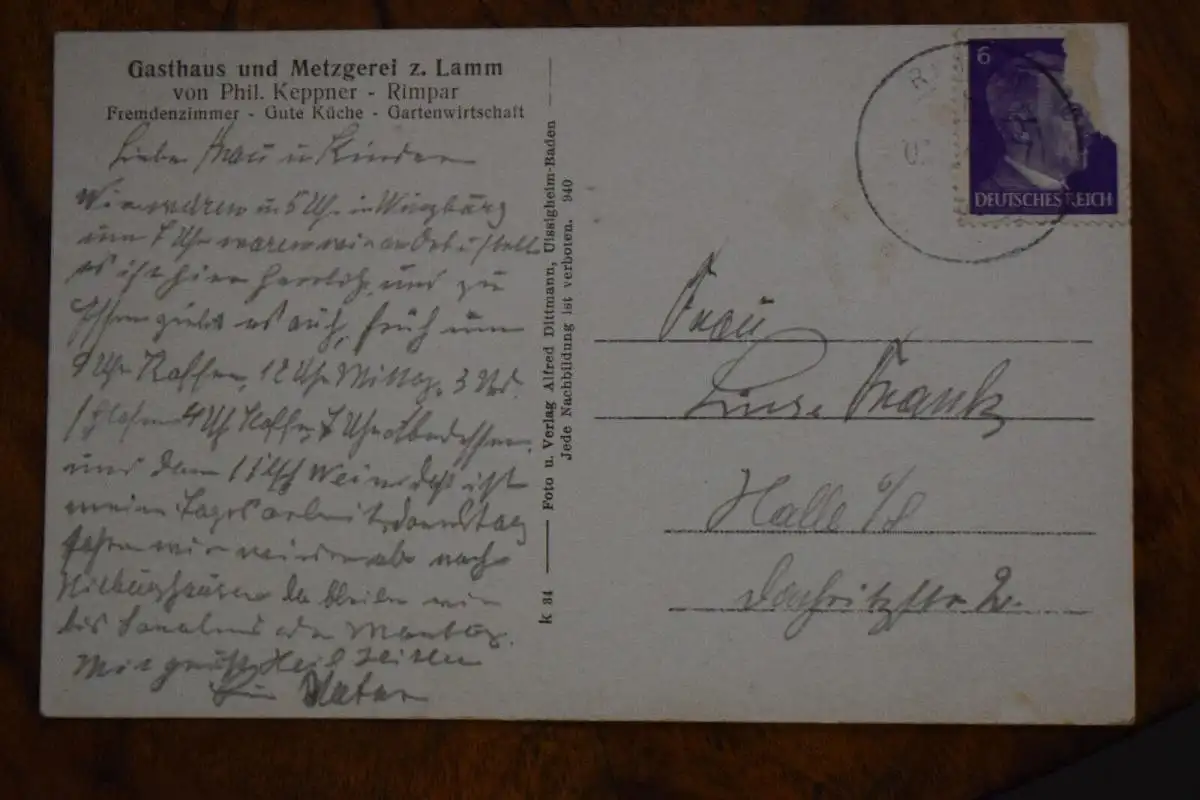 Gasthaus und Metzgerei z. Lamm
von Phil. Keppner - Rimpar
Fremdenzimmer - Gute Küche - Gartenwirtschaft
Liebe Frau u Kinder
Wir waren um 5 Uhr in Würzburg
um 7 Uhr waren wir an Ort u Stelle
es ist hier herrlich und zu
Essen giebt es auch, früh um
9 Uhr Kaffee, 12 Uhr Mittag, 3 Uhr
schlafen 4 Uhr Kaffee, 7 Uhr Abendessen
und dann Wein das ist
meine Tagesarbeit, donnstag
fahren wir wieder ab nach
Hildburghausen da bleiben wir
bis Sonabend oder Montag.
Mit gruß Heil
Vater
k 84 — Foto u. Verlag Alfred Dittmann, Uissigheim-Baden
Jede Nachbildung ist verboten. 940
6
DEUTSCHES REICH
Frau
Luise Frank
Halle a/S
Dachritzstr 2.